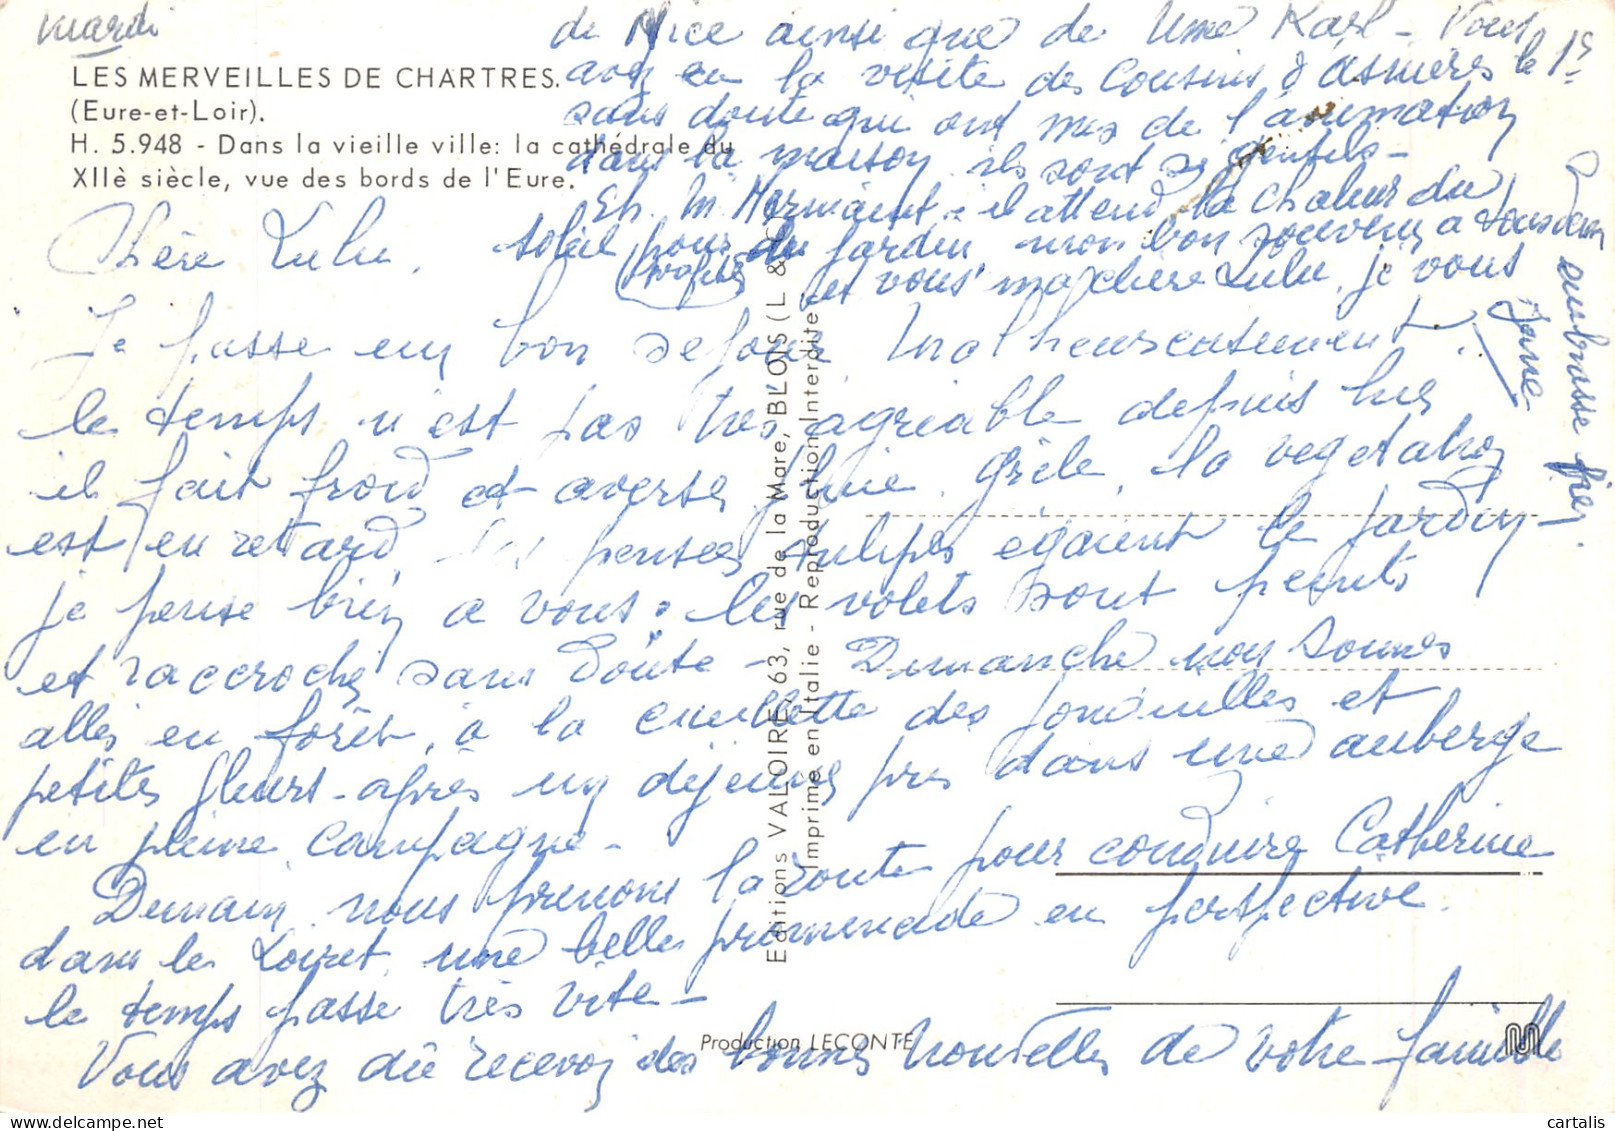 mardi
LES MERVEILLES DE CHARTRES.
(Eure-et-Loir).
H. 5.948 - Dans la vieille ville: la cathédrale du
XIIè siècle, vue des bords de l'Eure.
Chère Lulu,
Je passe un bon séjour Malheureusement,
le temps n'est pas très agréable depuis hier
il fait froid et averses, pluie, grêle, la végétation
est en retard, pensées tulipes égaient le jardin -
je pense bien a vous. les volets sont peints
et raccrochés sans doute - Dimanche nous sommes
allés en forêt, à la cueillette des jonquilles et
petites fleurs - après un déjeuner pris dans une auberge
en pleine campagne -
Demain, nous prenons la route pour conduire Catherine
dans le Loiret, une belle promenade en perspective.
le temps passe très vite -
Vous avez dû recevoir des bonnes nouvelles de votre famille
de Nice ainsi que de Mme Karl - Vous
avez eu la visite des cousins d'Asnières le 1er
sans doute qui ont mis de l'animation
dans la maison, ils sont si gentils -
Eh. M. il attend la chaleur du
soleil pour du jardin mon bon souvenir a tous deux
et vous ma chère Lulu, je vous
embrasse
Editions VALOIRE, 63, rue de la Mare, BLOIS (L & C)
Imprimé en Italie - Reproduction Interdite
Production LECONTE
cartalis